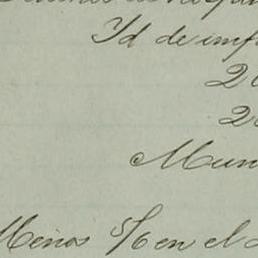 Id de imf
2
2
Mun
Menos 5/6 en el